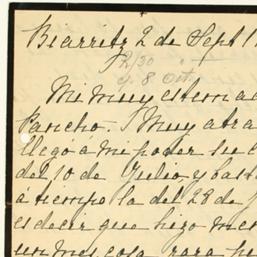 Biarritz 2 de Sept 1
9/30
8 Oct
Mi muy estimad
Pancho. Muy atra
llegó a mi poder su c
del 10 de Julio y bast
á tiempo la del 28 de
es decir que hizo me
un mes cosa rara